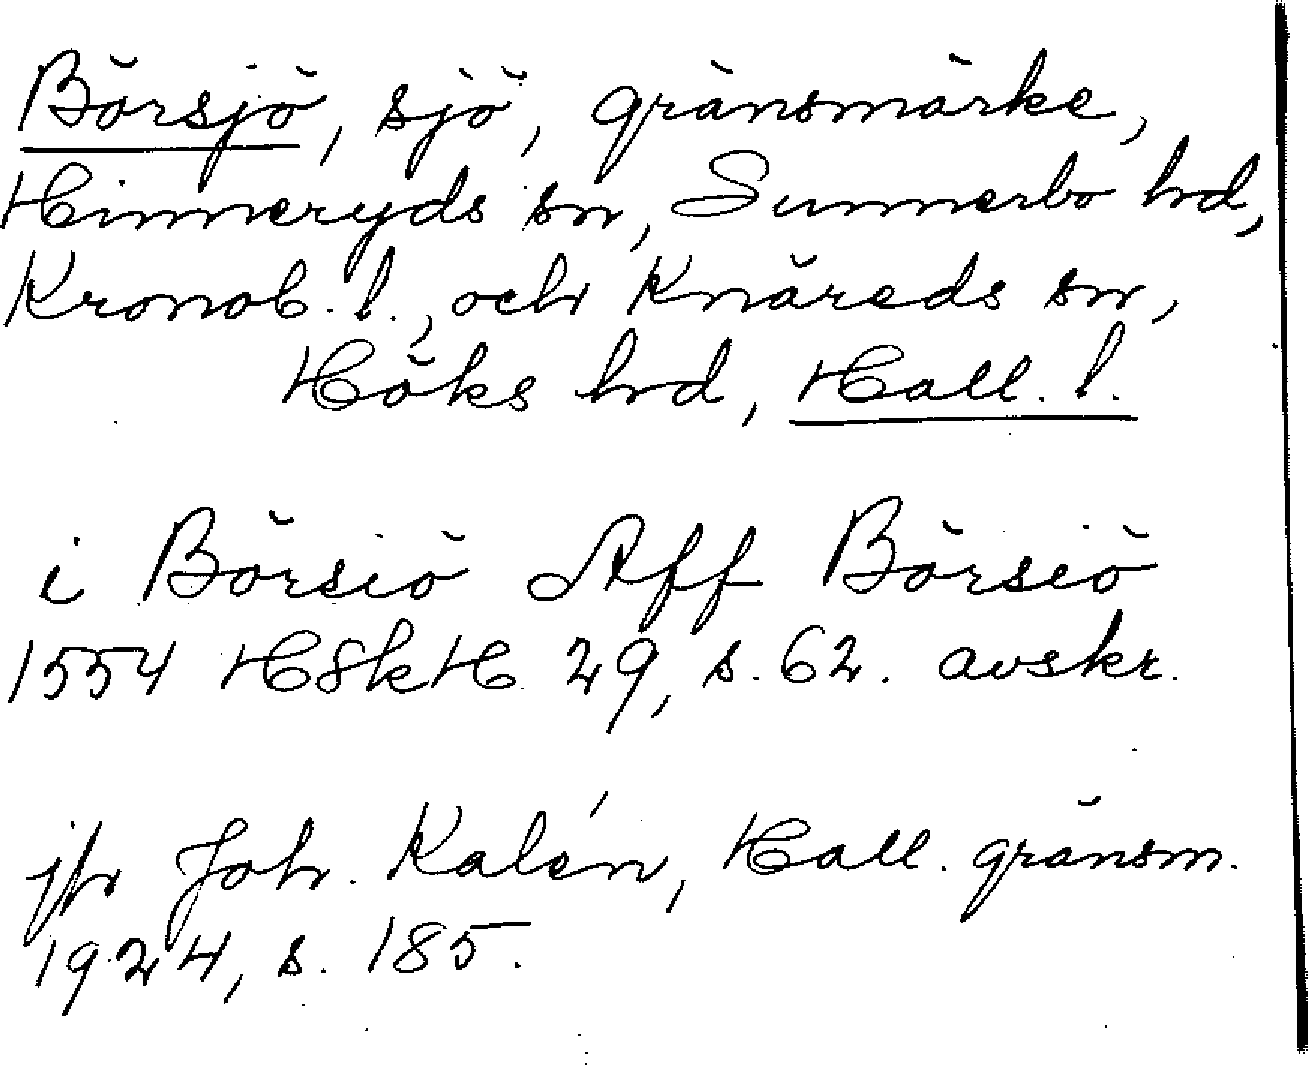 Börsjö, sjö, gränsmärke,
Hinneryds sn, Sunnerbo hd,
Kronob. l., och Knäreds sn,
Höks hd, Hall. l.
i Börsiö Aff Börsiö
1554 HSkH 29, s. 62. avskr.
jfr Joh. Kalén, Hall. gränsm.
1924, s. 185.